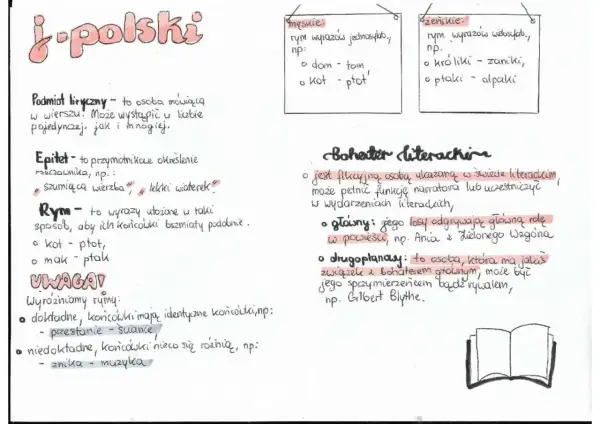 j. polski
Podmiot liryczny - to osoba mówiąca
w wierszu. Może wystąpić w liczbie
pojedynczej, jak i mnogiej.
Epitet - to przymiotnikowe określenie
rzeczownika, np.:
"szumiąca wierzba", "lekki wiaterek".
Rym - to wyrazy ułożone w taki
sposób, aby ich końcówki brzmiały podobnie.
o kot - płot,
o mak - ptak
UWAGA!
Wyróżniamy rymy:
o dokładne, końcówki mają identyczne końcówki, np:
- przestanie - śłanie
o niedokładne, końcówki nieco się różnią, np:
- znika - muzyka
męskie:
rym wyrazów jednosylab.,
np:
o dom - tom
o kot - płot
żeńskie:
rym wyrazów wielosylab.,
np.
o króliki - zaniki,
o ptaki - alpaki
Bohater literacki
o jest fikcyjną osobą ukazaną w świecie literackim,
może pełnić funkcję narratora lub uczestniczyć
w wydarzeniach literackich,
o główny: jego losy odgrywają główną rolę
w powieści, np. Ania z Zielonego Wzgórza
o drugoplanowy: to osoba, która ma jakiś
związek z bohaterem głównym, może być
jego sprzymierzeńcem bądź rywalem,
np. Gilbert Blythe.